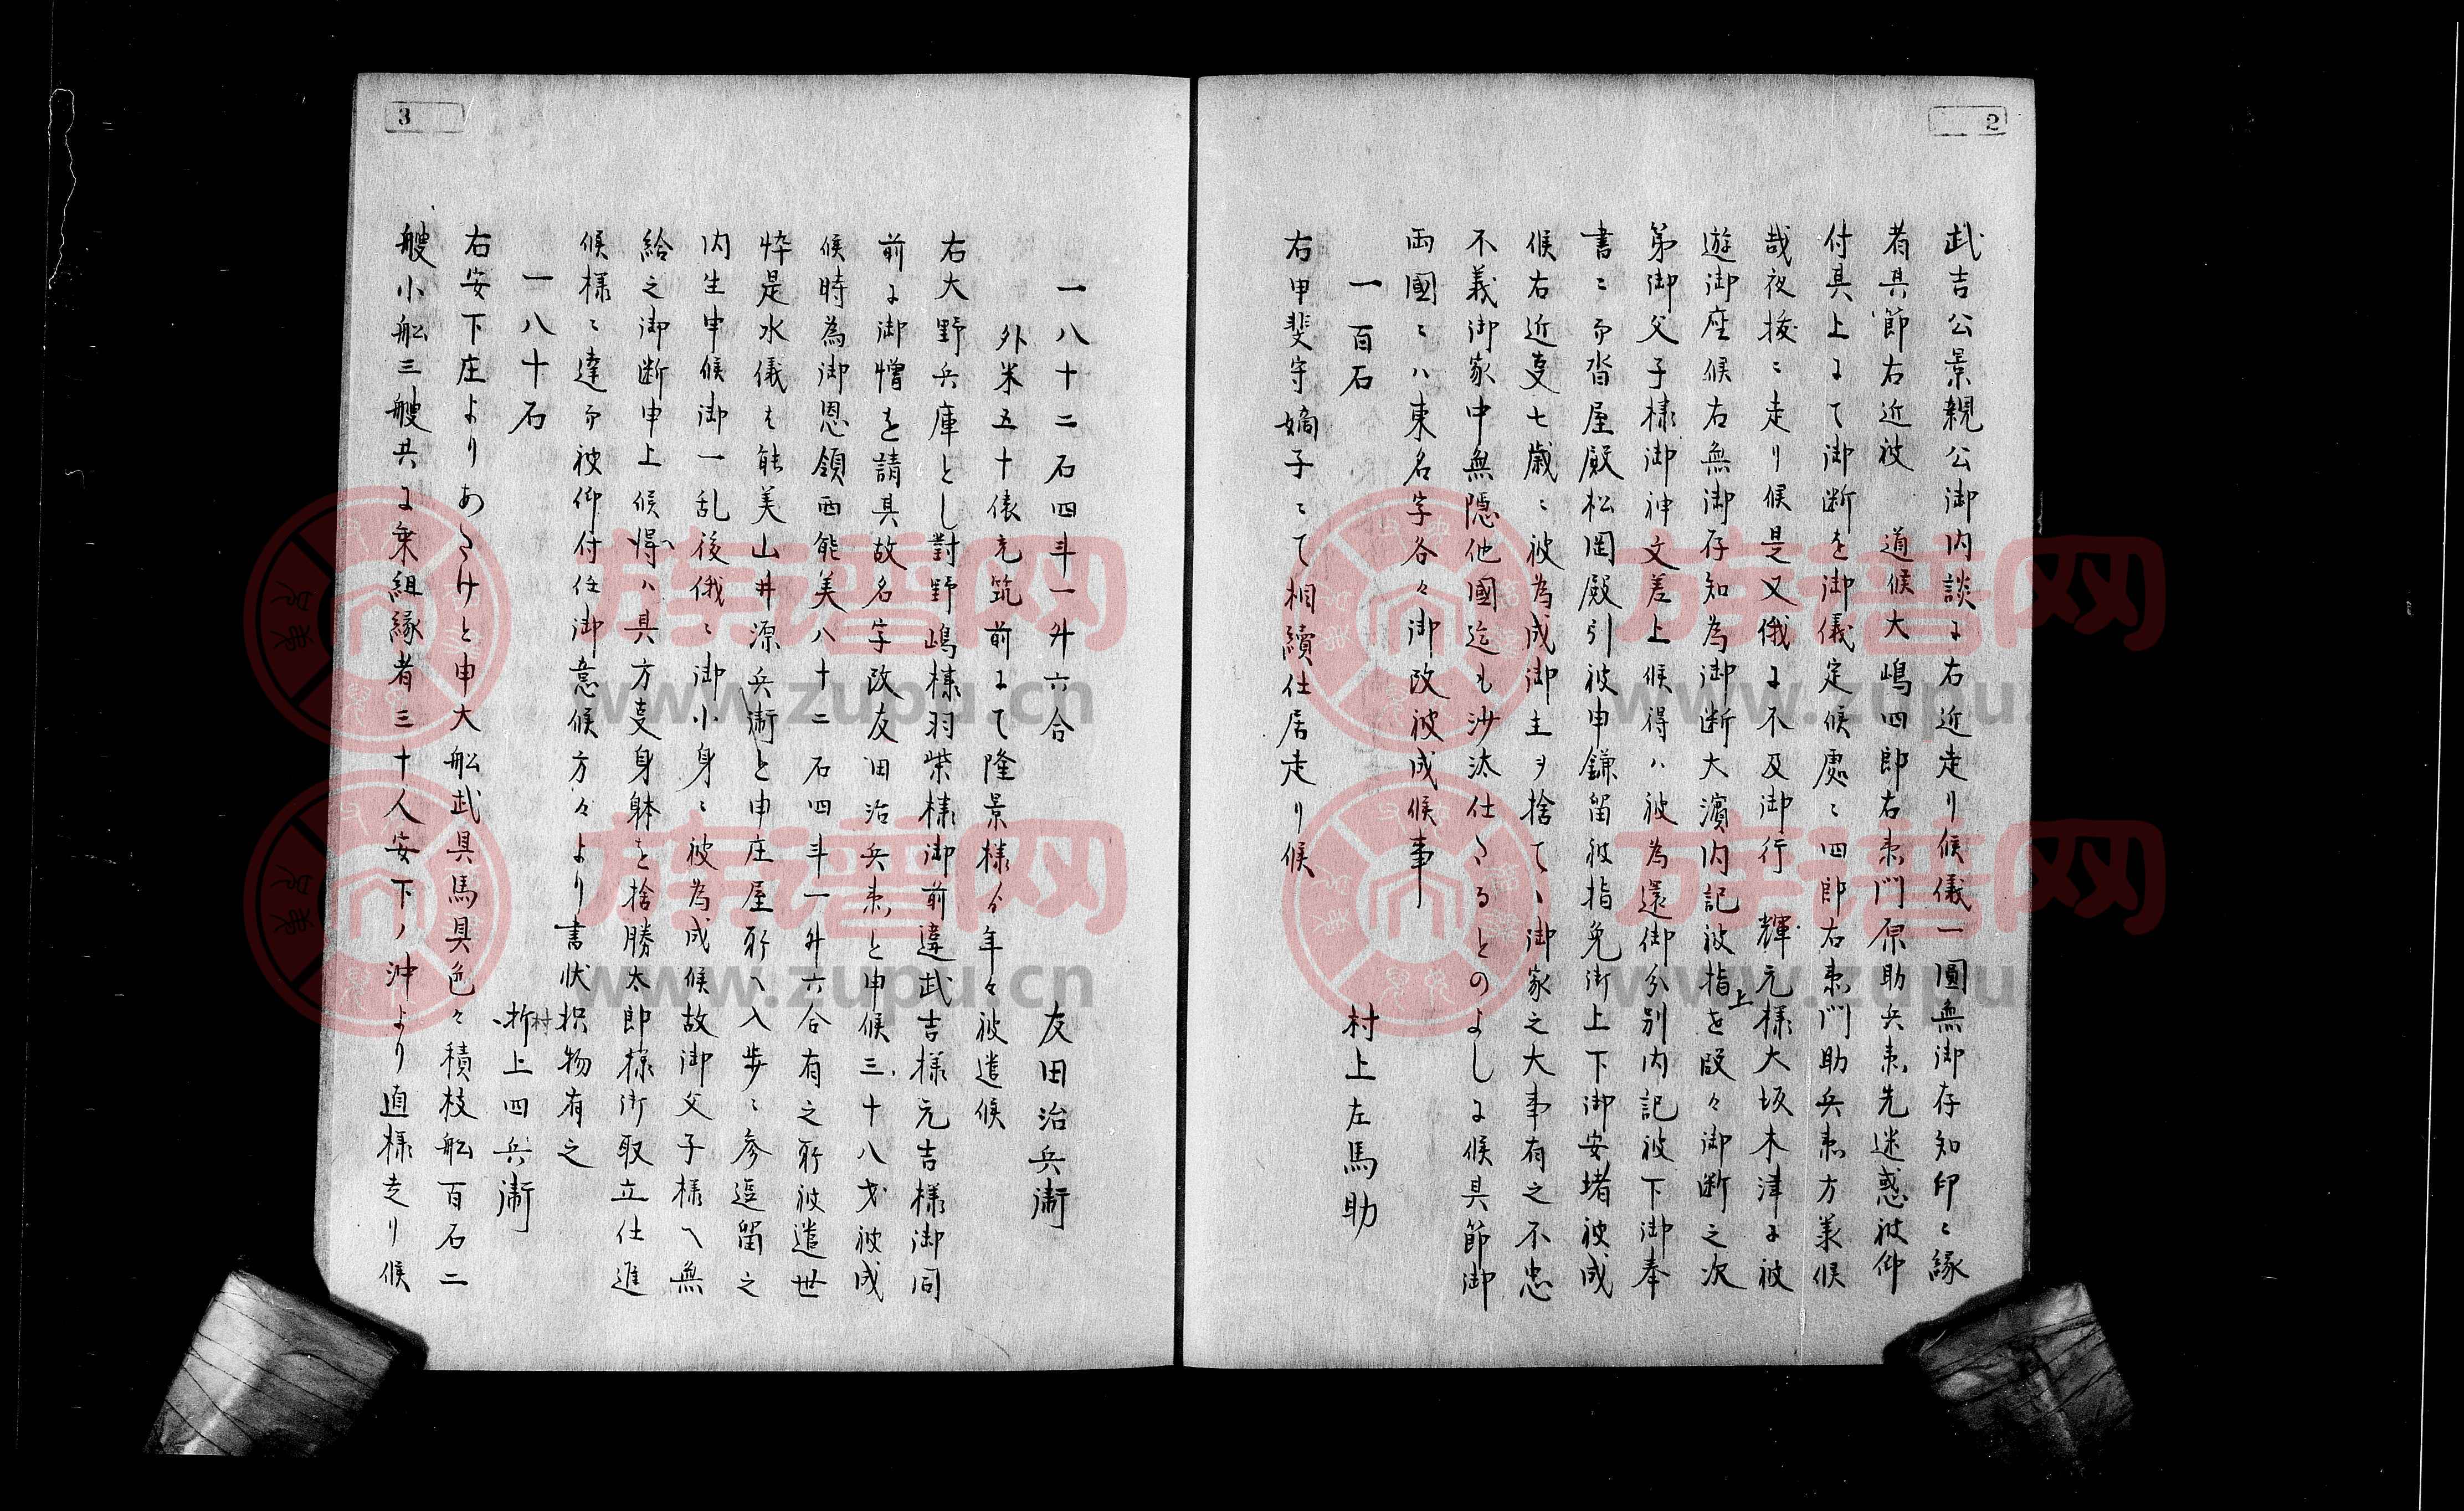 2
武吉公景親公御内談ニ右近走リ候儀一圓無御存知印ニ縁
者其節右近被　道候大嶋四郎右衛門原助兵衛先迷惑被仰
付其上ニて御断を御儀定候處ニ四郎右衛門助兵衛方義候
哉夜抜ニ走リ候是又俄ニ不及御行　輝元様大坂木津ニ被
遊御座候右無御存知為御断大濱内記被指上を段々御断之次
第御父子様御神文差上候得ハ被為還御分別内記被下御奉
書ニ而沓屋殿松岡殿引被申鎌留被指免御上下御安堵被成
候右近事七歳ニ被為成御主ヲ捨て、御家之大事有之不忠
不義御家中無隠他國迄も沙汰仕たるとのよしニ候其節御
両國ニハ東名字各々御改被成候事
一百石　村上左馬助
右甲斐守嫡子ニて相續仕居走リ候
3
一八十二石四斗一升六合　友田治兵衛
外米五十俵充筑前ニて隆景様ゟ年々被遣候
右大野兵庫とし對野嶋様羽柴様御前違武吉様元吉様御同
前ニ御憎を請其故名字改友田治兵衛と申候三十八才被成
候時為御恩領西能美八十二石四斗一升六合有之所被遣世
忰是水儀も能美山井源兵衛と申庄屋所へ入歩ニ参逗留之
内生申候御一乱後俄ニ御小身ニ被為成候故御父子様へ無
給之御断申上候得ハ其方事身躰を捨勝太郎様御取立仕進
候様ニ達而被仰付任御意候方々より書状択物有之
一八十石　村折上四兵衛
右安下庄よりあたけと申大船武具馬具色々積枝船百石二
艘小船三艘共ニ乗組縁者三十人安下ノ沖より直様走リ候
族谱网
www.zupu.cn